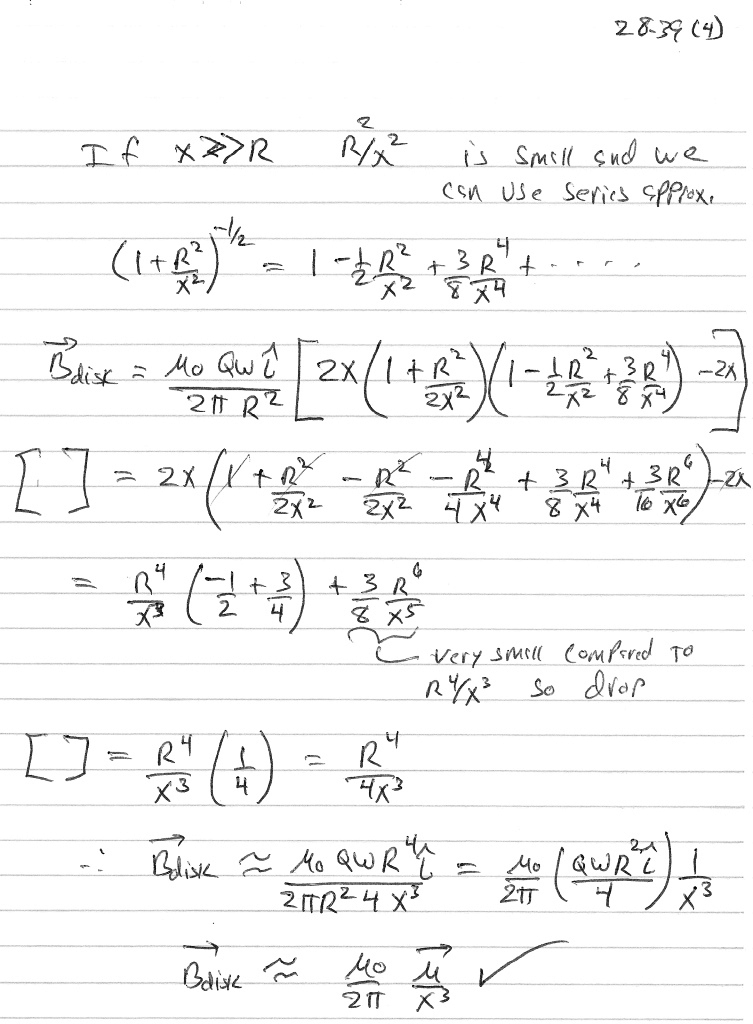 28-39 (4)
If x >> R R²/x² is small and we
can use series approx.
(1 + R²/x²)^(-1/2) = 1 - 1/2 R²/x² + 3/8 R⁴/x⁴ + · · · · ·
B⃗disk = μ₀ Qω î / 2π R² [ 2x (1 + R²/2x²)(1 - 1/2 R²/x² + 3/8 R⁴/x⁴) - 2x ]
[ ] = 2x (1 + R²/2x² - R²/2x² - R⁴/4x⁴ + 3/8 R⁴/x⁴ + 3/16 R⁶/x⁶) - 2x
= R⁴/x³ (-1/2 + 3/4) + 3/8 R⁶/x⁵
very small compared to
R⁴/x³ so drop
[ ] = R⁴/x³ (1/4) = R⁴/4x³
∴ B⃗disk ≈ μ₀ QωR⁴ î / 2πR² 4 x³ = μ₀/2π (QωR² î / 4) 1/x³
B⃗disk ≈ μ₀/2π μ⃗/x³ ✓